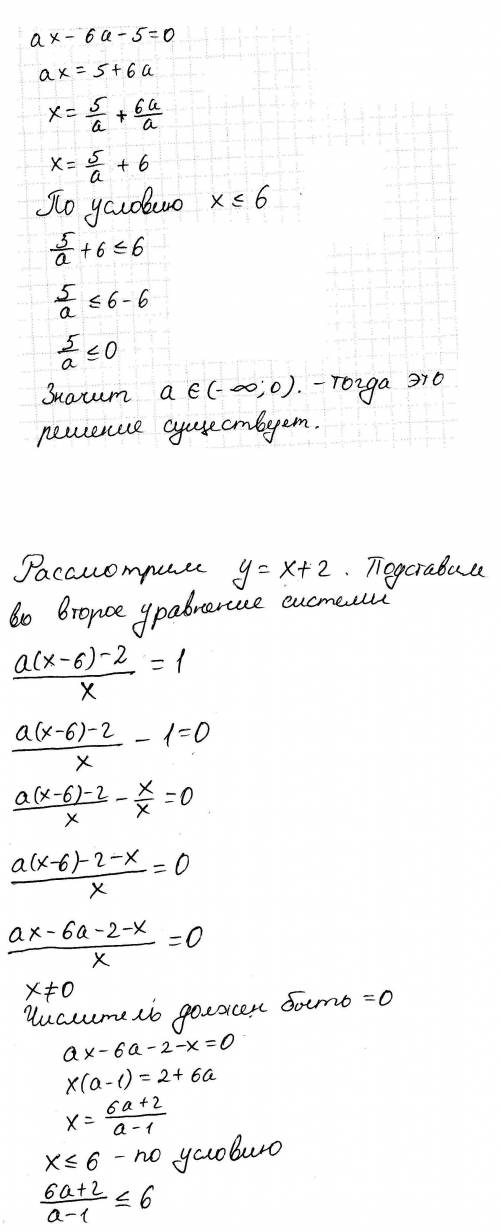 ax - 6a - 5 = 0
ax = 5 + 6a
x = 5/a + 6a/a
x = 5/a + 6
По условию x ≤ 6
5/a + 6 ≤ 6
5/a ≤ 6 - 6
5/a ≤ 0
Значит a ∈ (-∞; 0). - тогда это
решение существует.
Рассмотрим y = x + 2. Подставим
во второе уравнение системы
(a(x-6)-2)/x = 1
(a(x-6)-2)/x - 1 = 0
(a(x-6)-2)/x - x/x = 0
(a(x-6)-2-x)/x = 0
(ax-6a-2-x)/x = 0
x ≠ 0
Числитель должен быть = 0
ax - 6a - 2 - x = 0
x(a-1) = 2 + 6a
x = (6a+2)/(a-1)
x ≤ 6 - по условию
(6a+2)/(a-1) ≤ 6